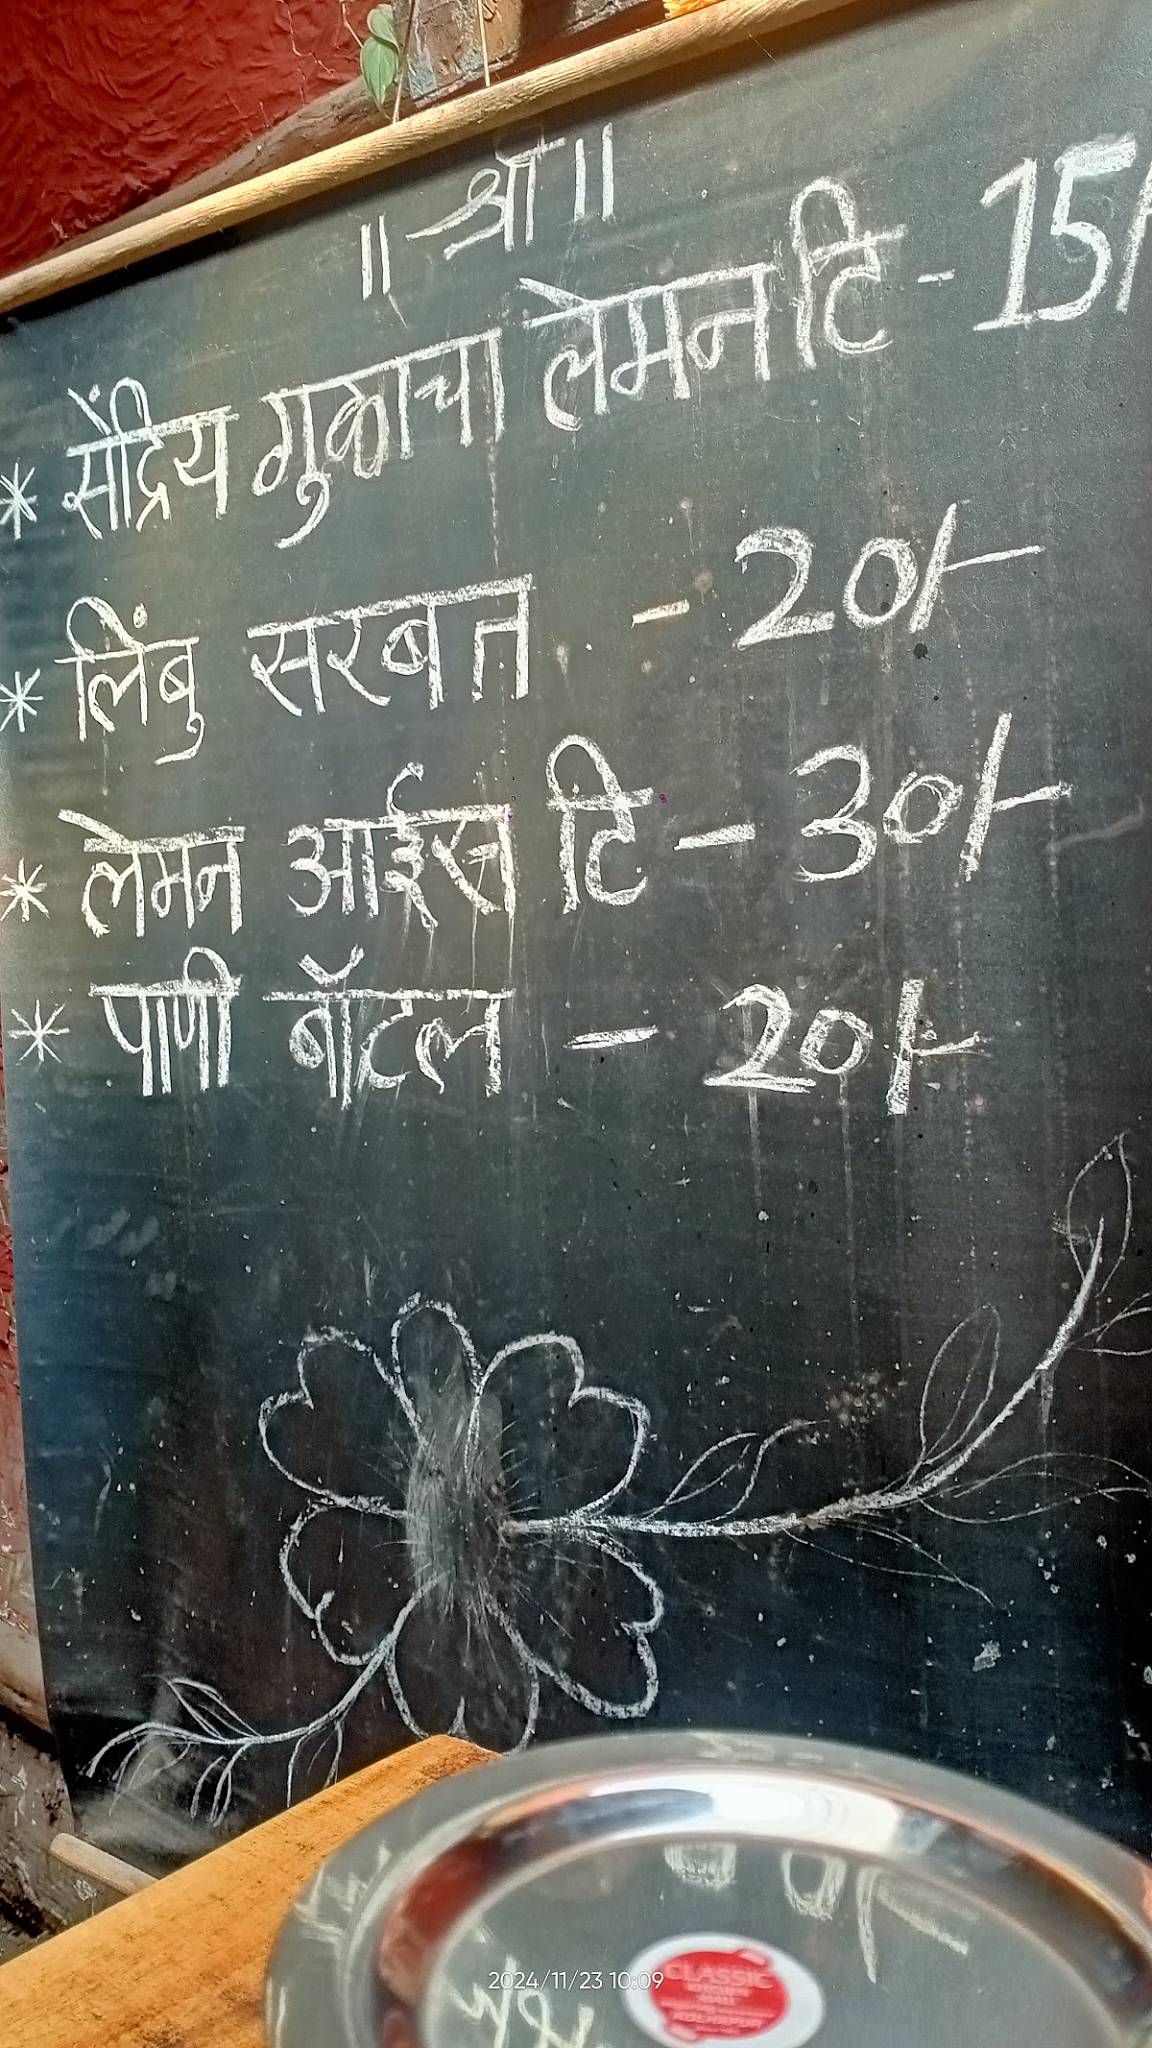 ॥ श्री ॥
* सेंद्रिय गुळाचा लेमन टि - 15/
* लिंबु सरबत - 20/-
* लेमन आईस टि - 30/-
* पाणी बॉटल - 20/-
2024/11/23 10:09
CLASSIC
KOLHAPUR